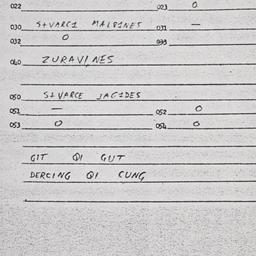 022 023 0
030 S+VARCI MALPINES 031 —
032 0 033
040 ZURAVINES
050 S+VARCE JACIDES
051 — 052 0
053 0 054 0
GIT QI GUT
DERCING QI CUNG